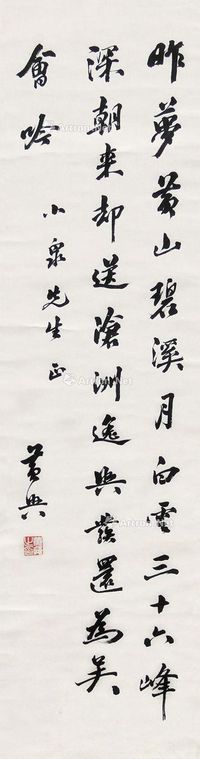 昨夢黃山碧溪月白雲三十六峰
深朝来却送滄洲逸興發還為吴
會吟
小泉先生正
黃興